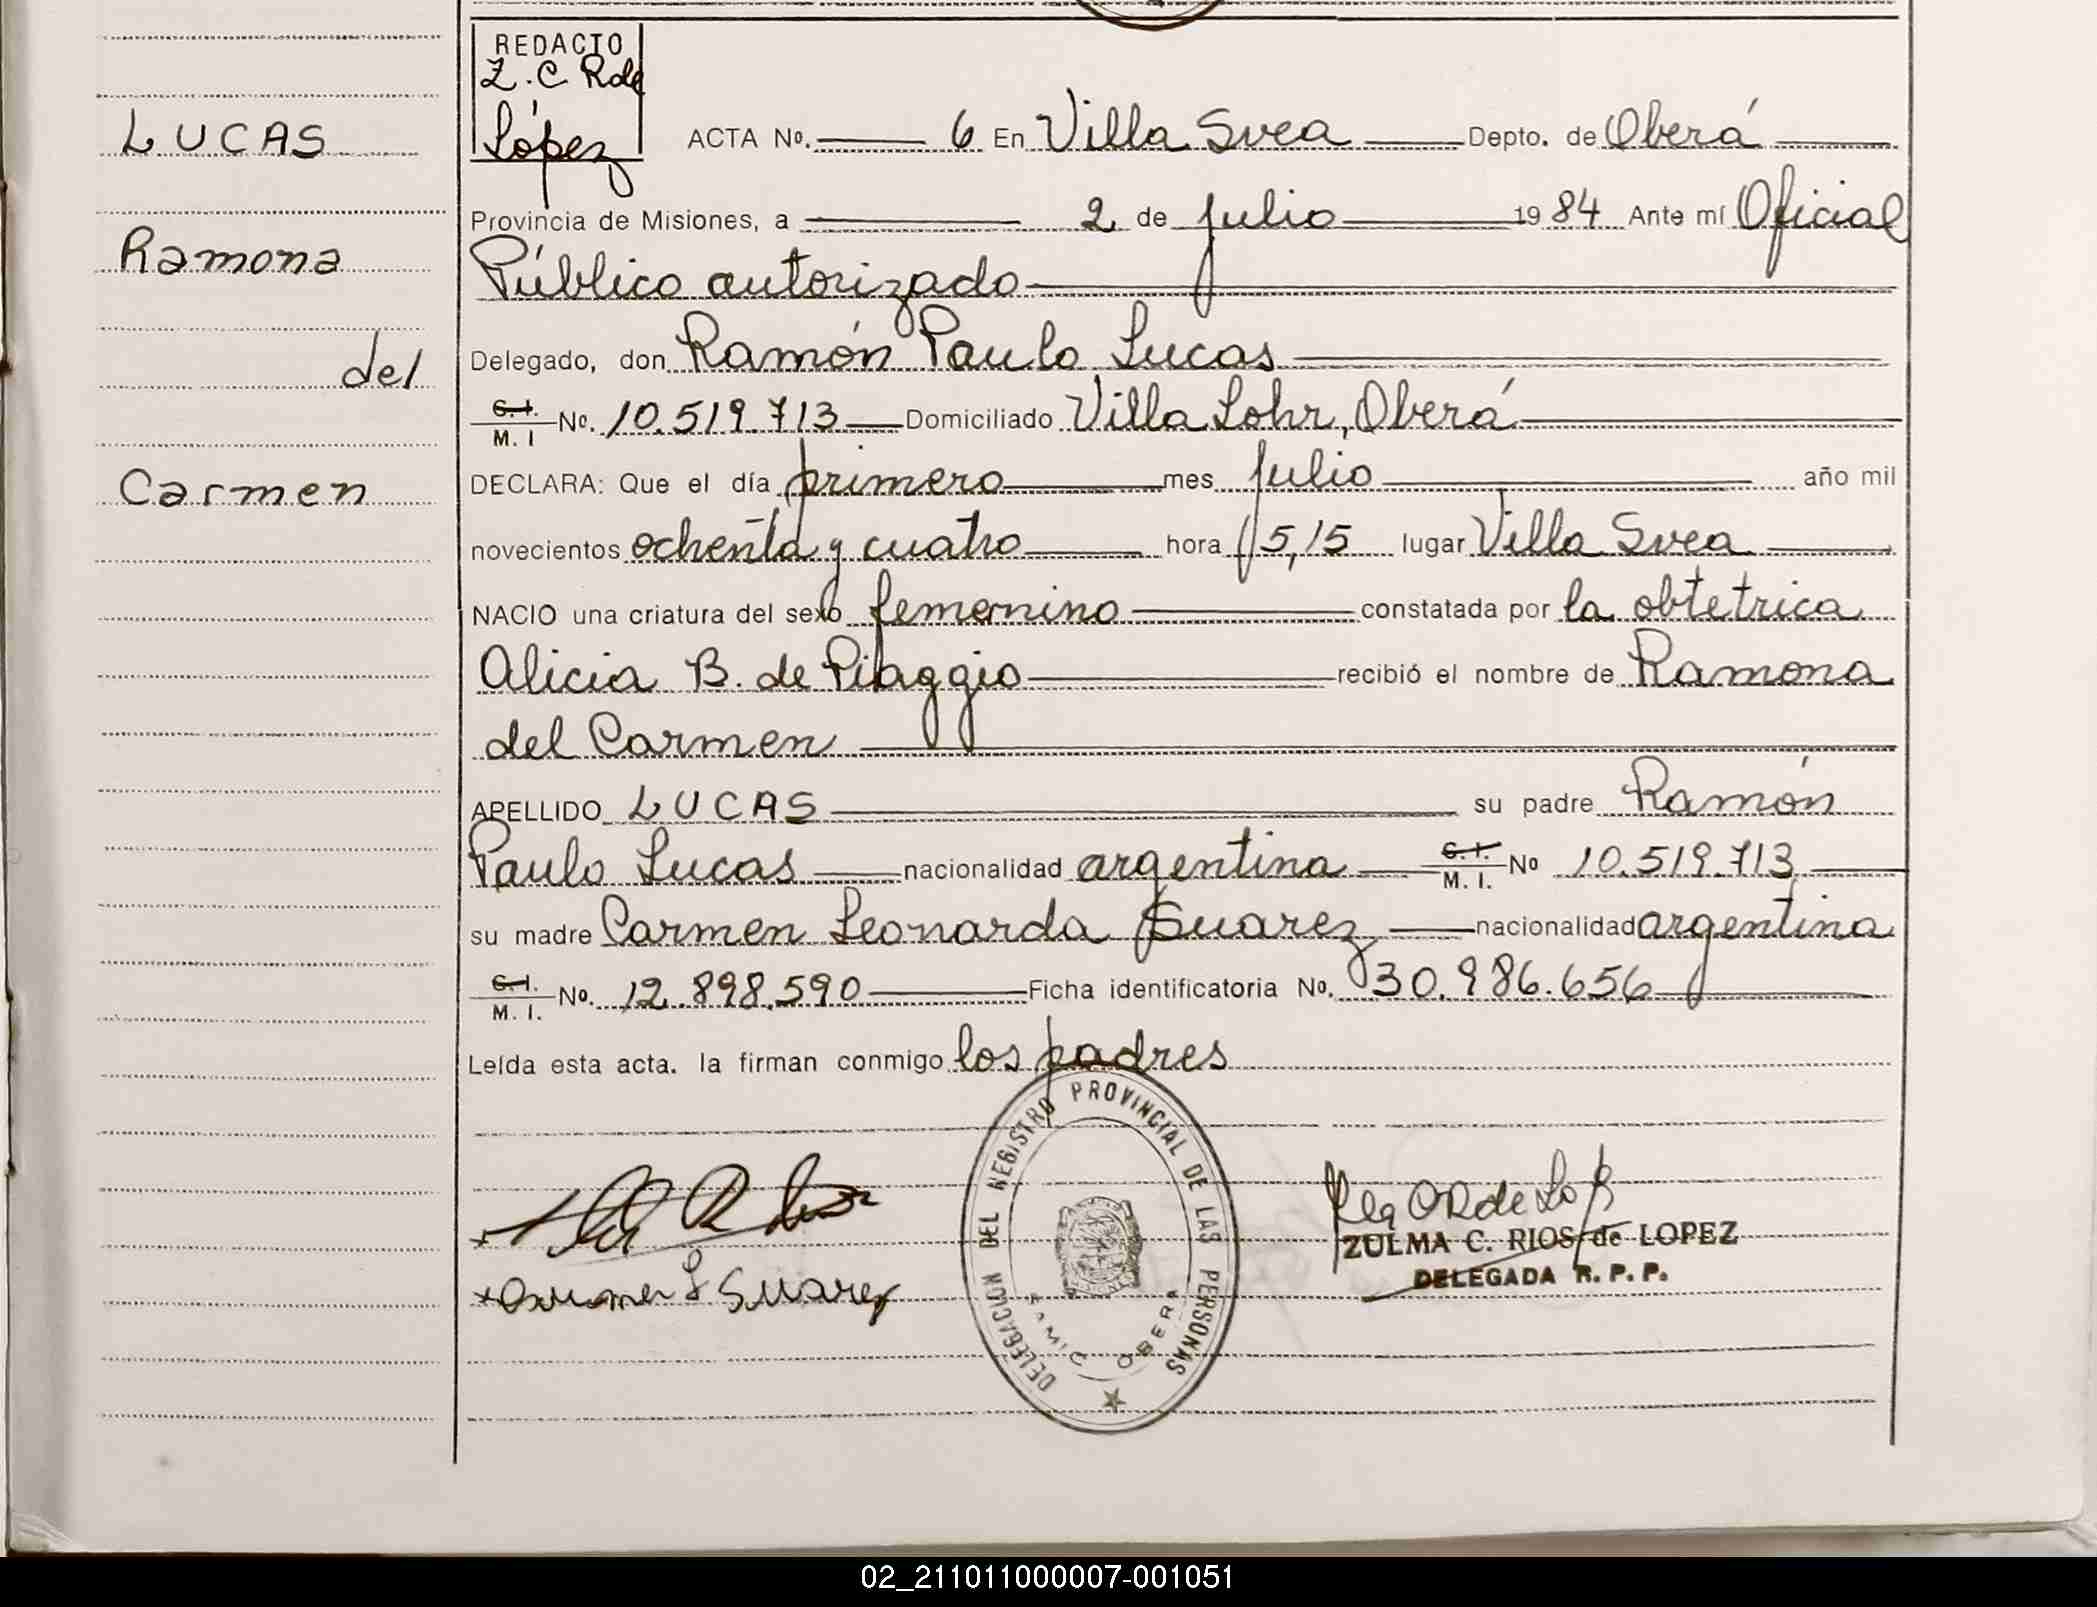 LUCAS
Ramona
del
Carmen
REDACTO
Z. C R de
López
ACTA No. 6 En Villa Svea Depto. de Oberá
Provincia de Misiones, a 2 de julio 1984 Ante mí Oficial
Público autorizado
Delegado, don Ramón Paulo Lucas
C. I. M. I No. 10.519.713 Domiciliado Villa Lohr, Oberá
DECLARA: Que el día primero mes julio año mil
novecientos ochenta y cuatro hora 15,15 lugar Villa Svea
NACIO una criatura del sexo femenino constatada por la obtetrica
Alicia B. de Piaggio recibió el nombre de Ramona
del Carmen
APELLIDO LUCAS su padre Ramón
Paulo Lucas nacionalidad argentina C. I. M. I. No 10.519.713
su madre Carmen Leonarda Suarez nacionalidad argentina
C. I. M. I. No. 12.898.590 Ficha identificatoria No. 30.986.656
Leída esta acta. la firman conmigo los padres
DELEGACION DEL REGISTRO PROVINCIAL DE LAS PERSONAS
SAMIC OBERA
Carmen L Suarez
ZULMA C. RIOS de LOPEZ
DELEGADA R. P. P.
02_211011000007-001051